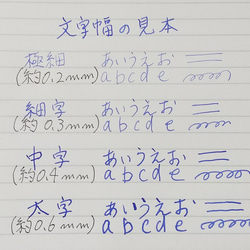 文字幅の見本
極細 あいうえお
(約0.2mm) a b c d e
細字 あいうえお
(約0.3mm) a b c d e
中字 あいうえお
(約0.4mm) a b c d e
太字 あいうえお
(約0.6mm) a b c d e